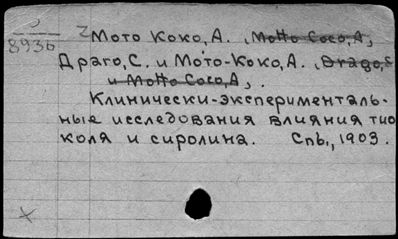 8936
Мото Коко, А. (Motto Coco, A.)
Драго, С. и Мото-Коко, А. (Drago, S
и Motto Coco, A.).
Клинически-эксперименталь-
ные исследования влияния тио
коля и сиролина. Спб., 1903.